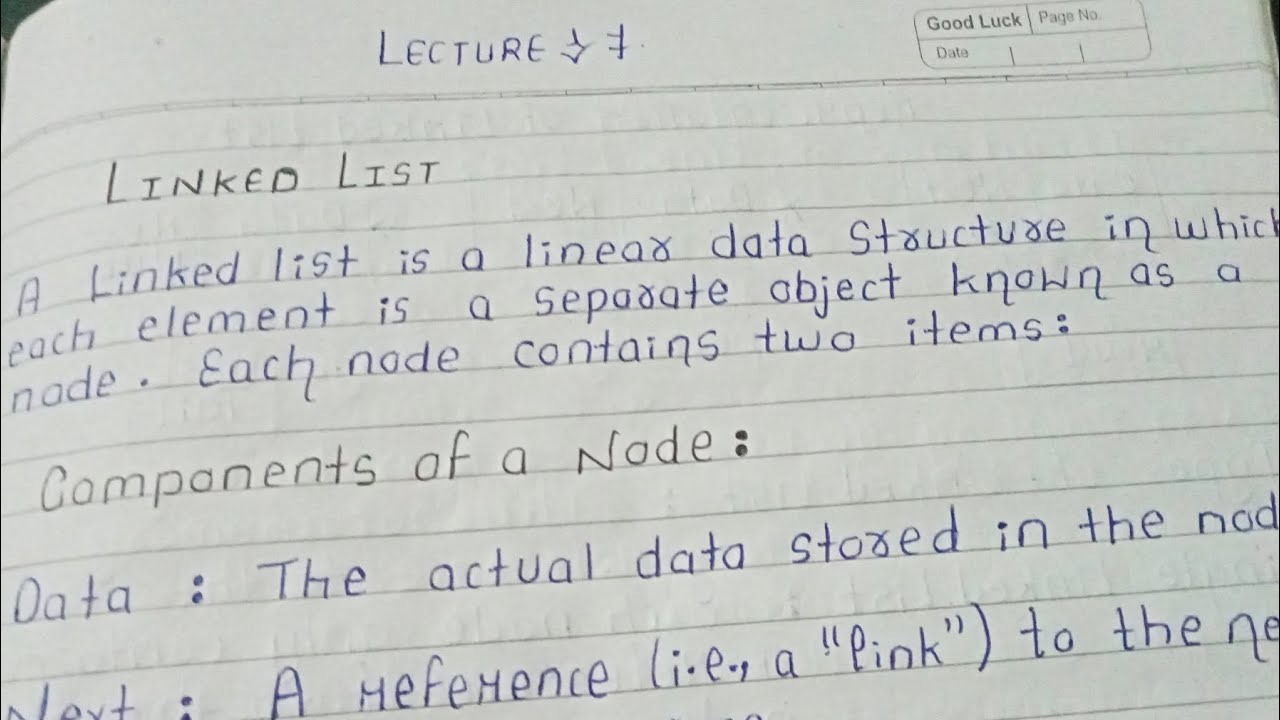 LECTURE → 7
Good Luck Page No.
Date
LINKED LIST
A Linked list is a linear data structure in which
each element is a separate object known as a
node. Each node contains two items:
Components of a Node:
Data : The actual data stored in the nod
Next : A reference (i.e., a "link") to the ne